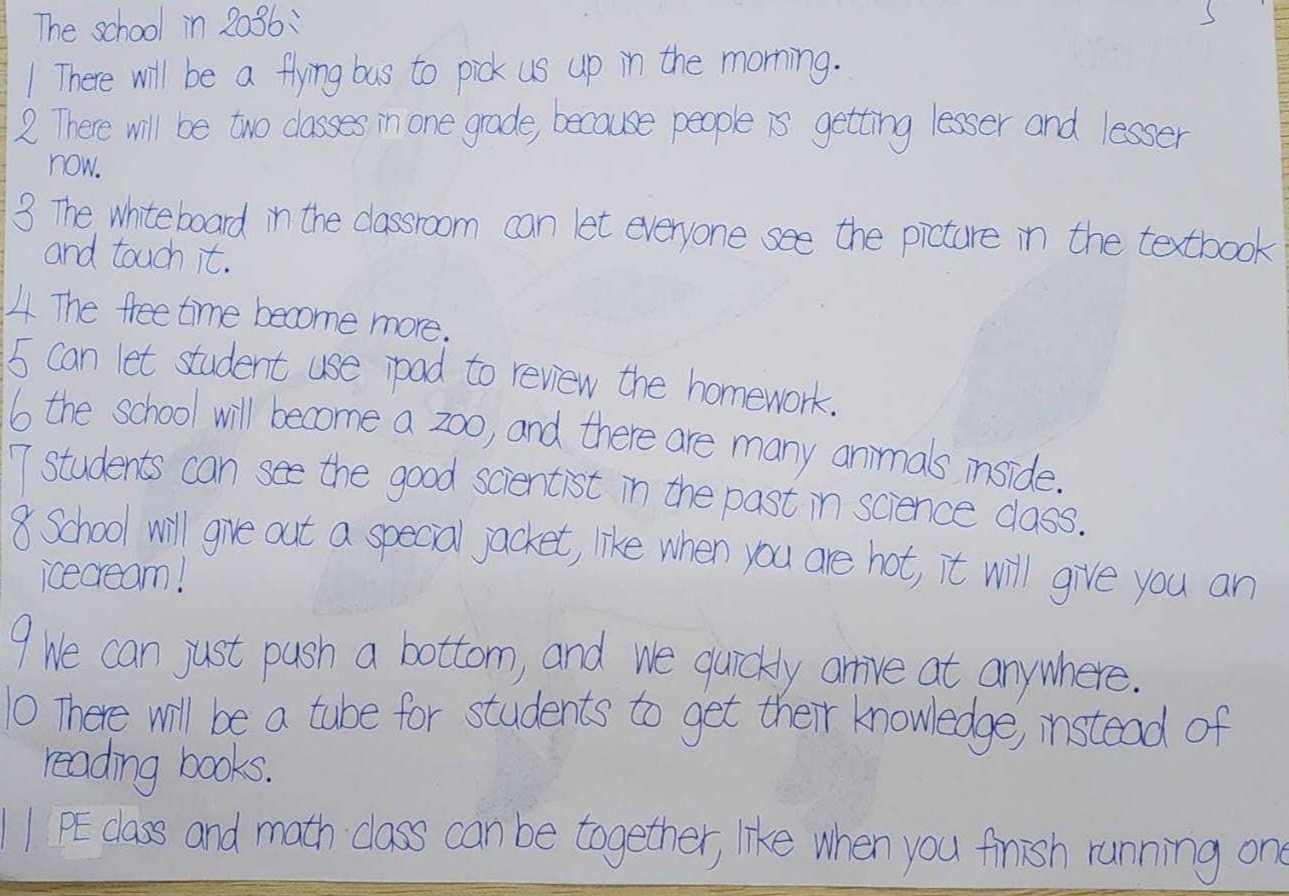 The school in 2036:
1 There will be a flying bus to pick us up in the morning.
2 There will be two classes in one grade, because people is getting lesser and lesser
now.
3 The whiteboard in the classroom can let everyone see the picture in the textbook
and touch it.
4 The free time become more.
5 Can let student use ipad to review the homework.
6 the school will become a zoo, and there are many animals inside.
7 students can see the good scientist in the past in science class.
8 School will give out a special jacket, like when you are hot, it will give you an
icecream!
9 We can just push a bottom, and we quickly arrive at anywhere.
10 There will be a tube for students to get their knowledge, instead of
reading books.
11 PE class and math class can be together, like when you finish running one